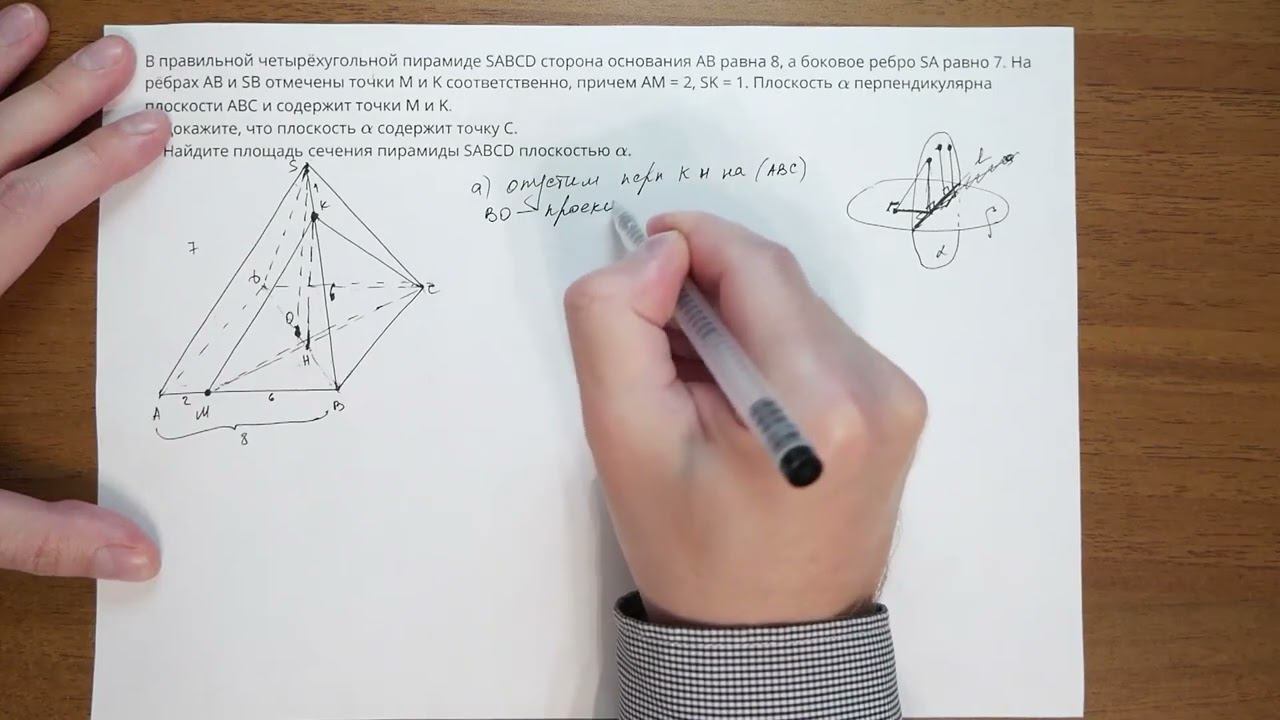 В правильной четырёхугольной пирамиде SABCD сторона основания AB равна 8, а боковое ребро SA равно 7. На
рёбрах AB и SB отмечены точки M и K соответственно, причем AM = 2, SK = 1. Плоскость α перпендикулярна
плоскости ABC и содержит точки M и K.
докажите, что плоскость α содержит точку C.
Найдите площадь сечения пирамиды SABCD плоскостью α.
а) опустим перп KH на (ABC)
BO - проекц
S
1
K
7
D
6
C
O
H
A
2
M
6
B
8
α